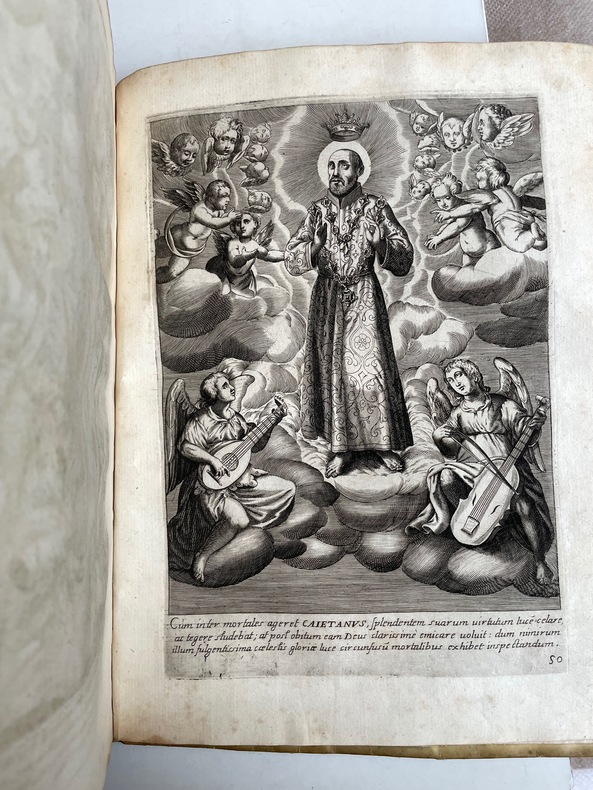 Cùm inter mortales ageret CAIETANVS, splendentem suarum virtutum lucē celare,
ac tegere studebat; at post obitum eam Deus clarissimè emicare voluit: dum nimirum
illum fulgentissima cælestis gloriæ luce circunfusū mortalibus exhibet inspectandum.
50